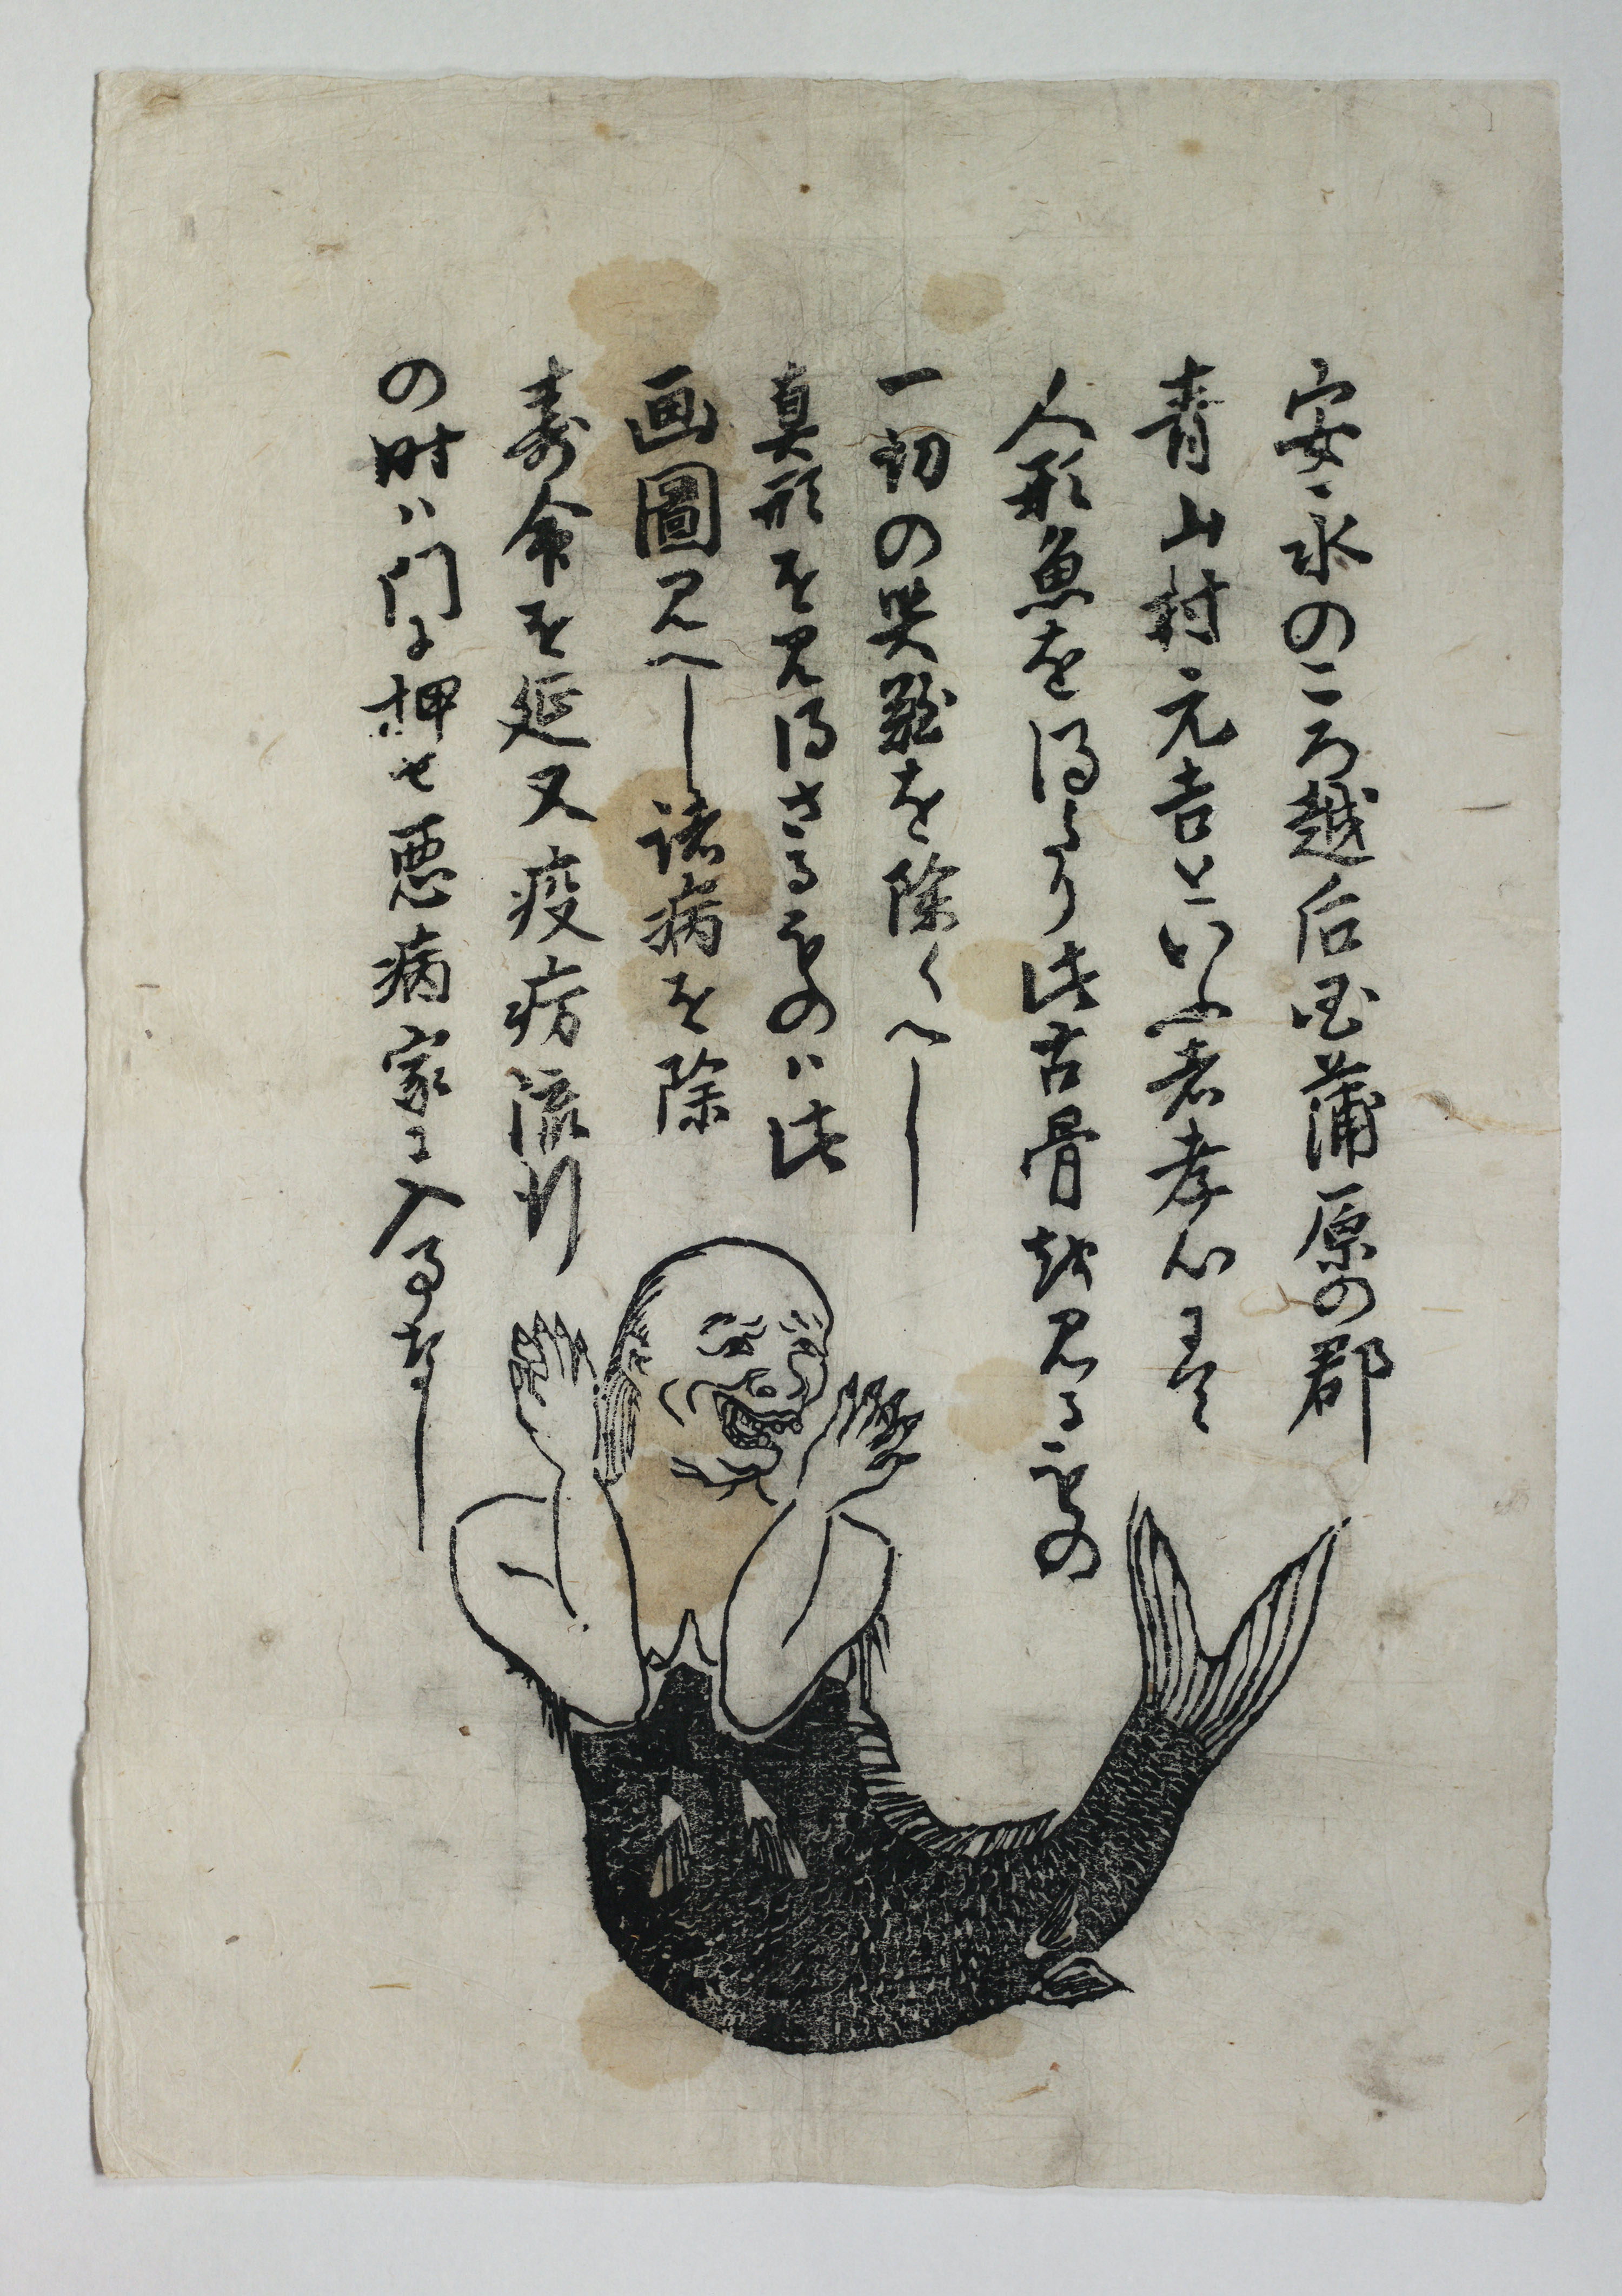 安永のころ越后国蒲原の郡
青山村元吉といふ者孝心ニて
人形魚を得たり此古骨越見るもの
一切の災難を除くへし
真形を見得さるものハ此
画圖見へし諸病を除
寿命を延又疫流行
の時ハ門に押せ悪病家に入事なし